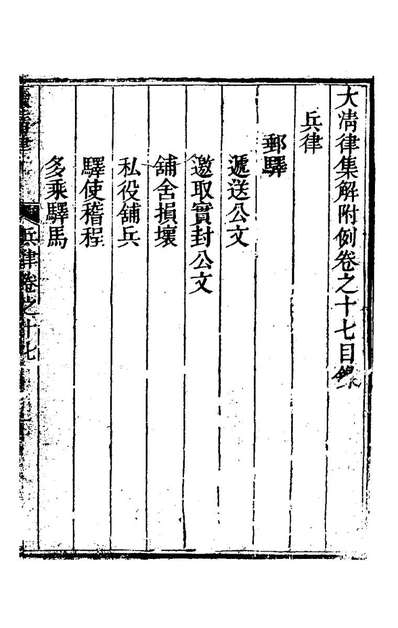 大淸律集解附例卷之十七目錄
兵律
郵驛
遞送公文
邀取實封公文
舖舍損壞
私役舖兵
驛使稽程
多乘驛馬
兵律卷之十七